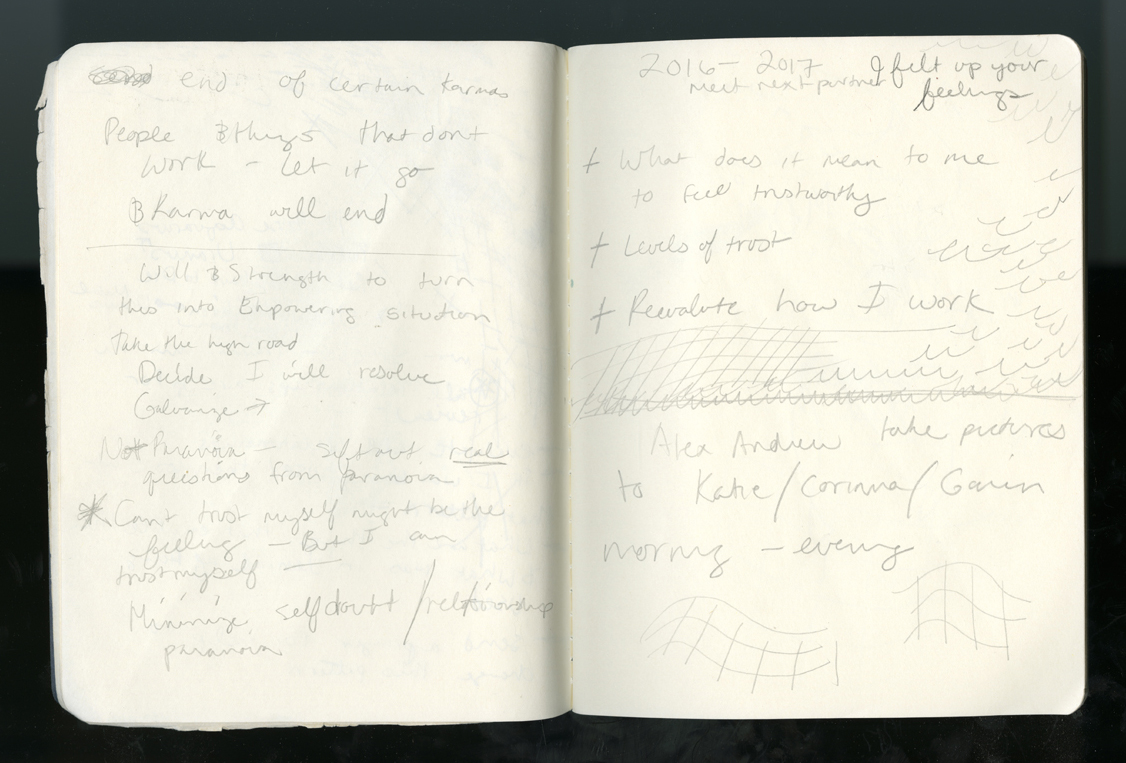 end of certain Karmas
People & things that dont
work – let it go
& Karma will end
Will & Strength to turn
this into Empowering situation
take the high road
Decide I will resolve
Galvanize →
Not Paranoia – sift out real
questions from paranoia
* Can't trust myself might be the
feeling – But I can
trust myself
Minimize selfdoubt / relationship
paranoia
2016 – 2017
meet next partner
I felt up your
feelings
+ What does it mean to me
to feel trustworthy
+ Levels of trust
+ Revalute how I work
Alex Andrew take pictures
to Katie / Corinna / Gavin
morning – evening